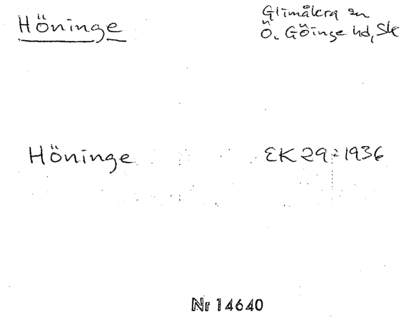 Höninge
Glimåkra sn
Ö. Göinge hd, Sk
Höninge EK 29:1936
Nr 14640